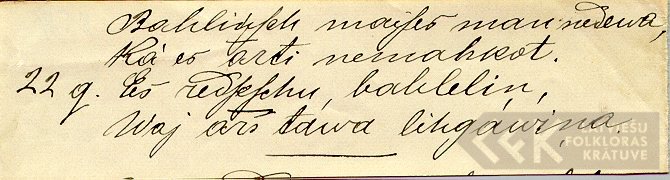 Bahliņsch maises man nedewa,
Ká es arti nemahkot.
22 g. Es redseschu, bahlelin,
Waj ars táwa lihgáwina.
LATVIEŠU
FOLKLORAS
KRĀTUVE